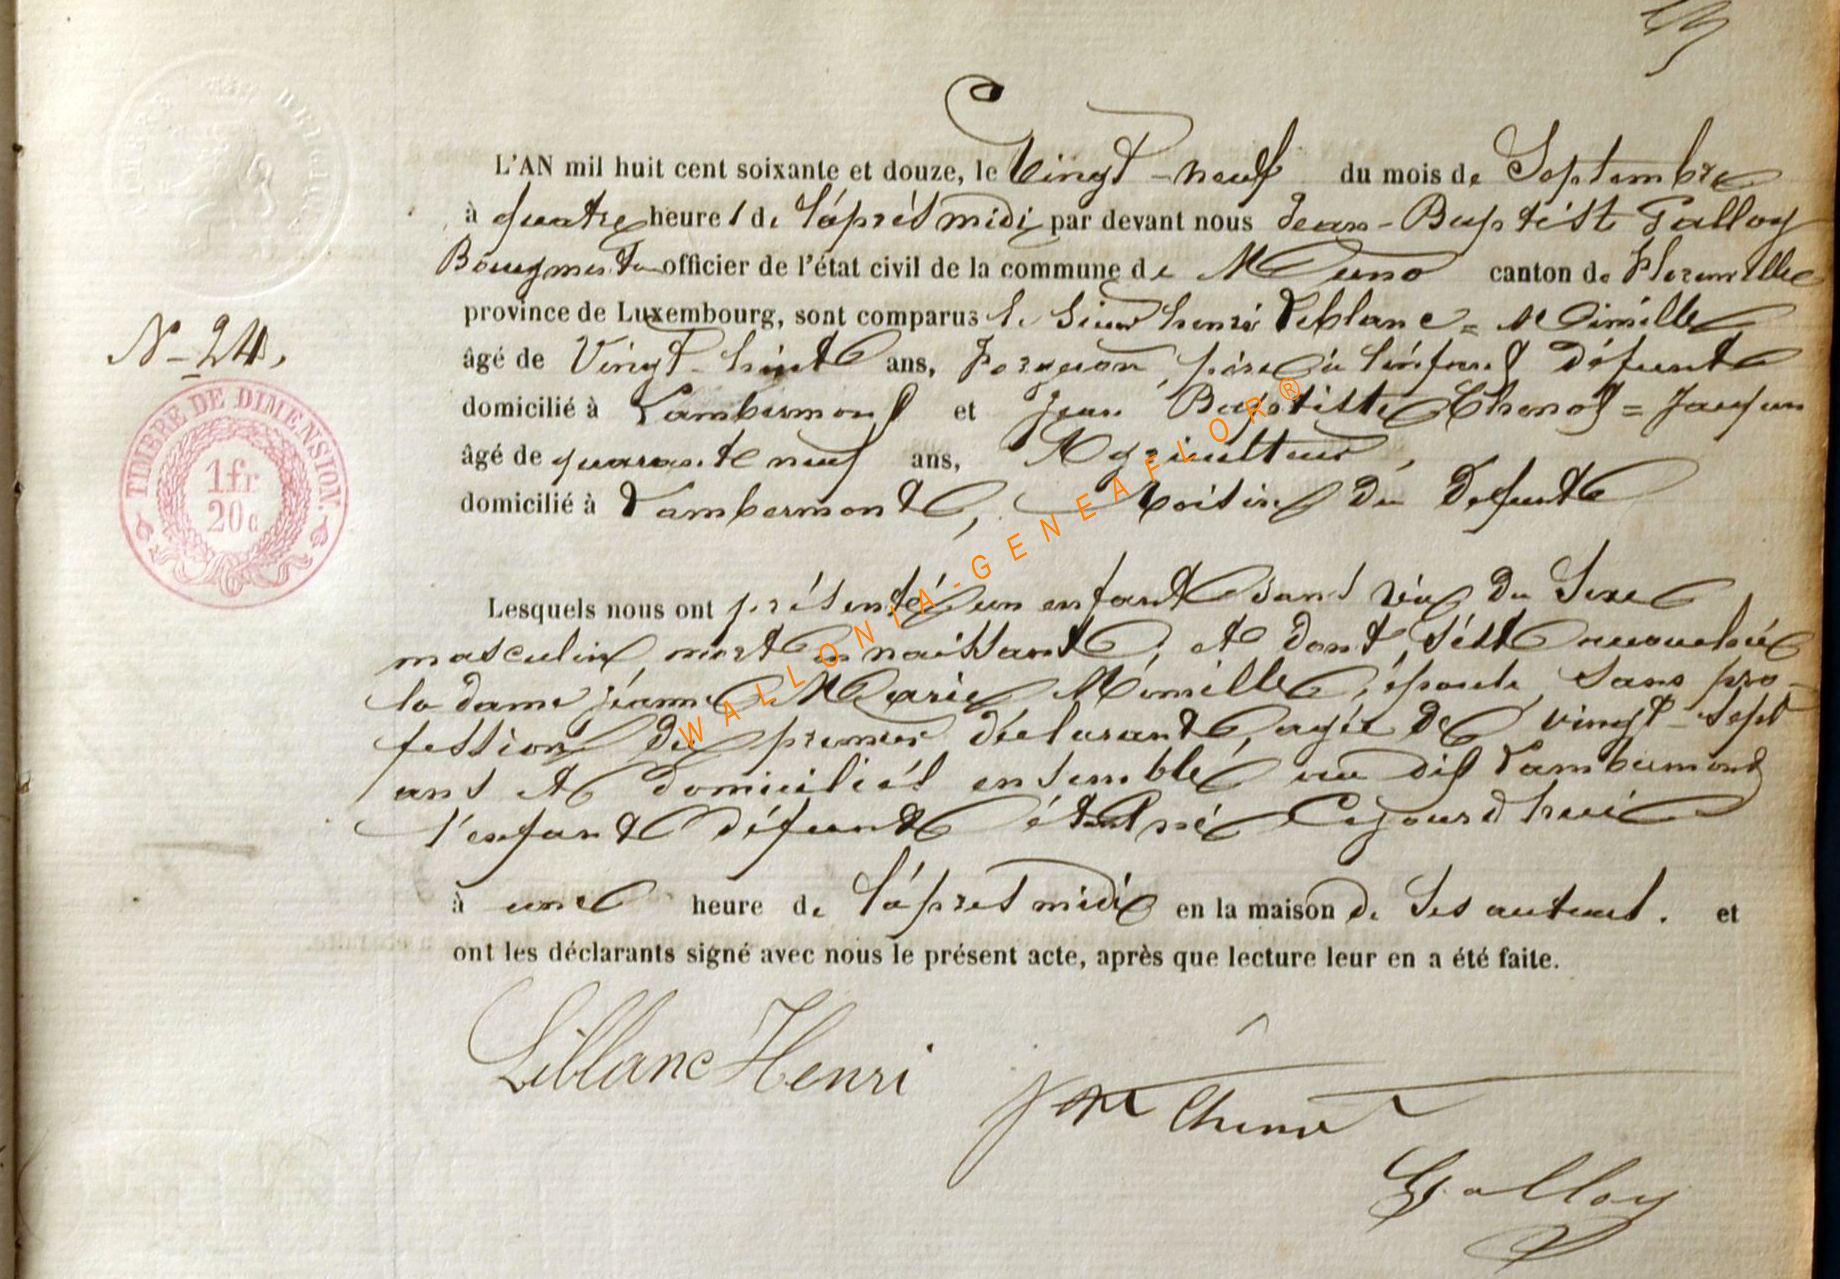 L'AN mil huit cent soixante et douze, le Vingt-neuf du mois de Septembre
à quatre heures de l'après midi par devant nous Jean-Baptiste Galloy
Bourgmestre officier de l'état civil de la commune de Muno canton de Florenville
province de Luxembourg, sont comparus le Sieur henri Leblanc = Mimille
N-24.
âgé de Vingt-huit ans, Forgeron, père à l'enfant défunt
domicilié à Lambermont et Jean Baptiste Chenot = Jacquin
âgé de quarante neuf ans, Agriculteur,
domicilié à Lambermont, voisin du défunt
TIMBRE DE DIMENSION.
1fr
20c
Lesquels nous ont présenté un enfant sans vie du Sexe
masculin, mort en naissant, et dont s'est accouchée
la dame jeanne Marie Mimille, épouse, sans pro-
fession du premier déclarant, agée de vingt-sept
ans et domiciliés ensemble au dit Lambermont
l'enfant défunt étant né Cejourd'hui
à une heure de l'après midi en la maison de Ses auteurs. et
ont les déclarants signé avec nous le présent acte, après que lecture leur en a été faite.
Leblanc Henri
Chenot
Galloy
WALLONIA-GENEAFLOR®